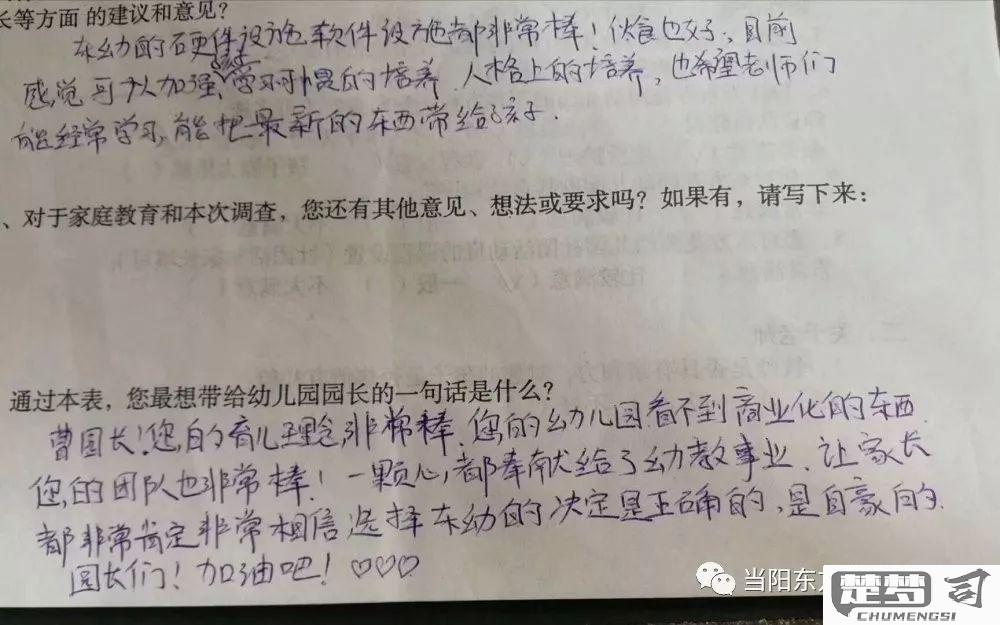 长等方面的建议和意见？
东幼的硬件设施软件设施都非常棒！伙食也好，目前
感觉可以加强学习习惯的培养 人格上的培养，也希望老师们
能经常学习，能把最新的东西带给孩子．
、对于家庭教育和本次调查，您还有其他意见、想法或要求吗？如果有，请写下来：
通过本表，您最想带给幼儿园园长的一句话是什么？
曹园长！您的育儿理念，非常棒．您的幼儿园看不到商业化的东西．
您的团队也非常棒！一颗心，都奉献给了幼教事业．让家长
都非常肯定非常相信选择东幼的决定是正确的，是自豪的．
园长们！加油吧！♡♡♡
当阳东
楚梦司
CHUMENGSI